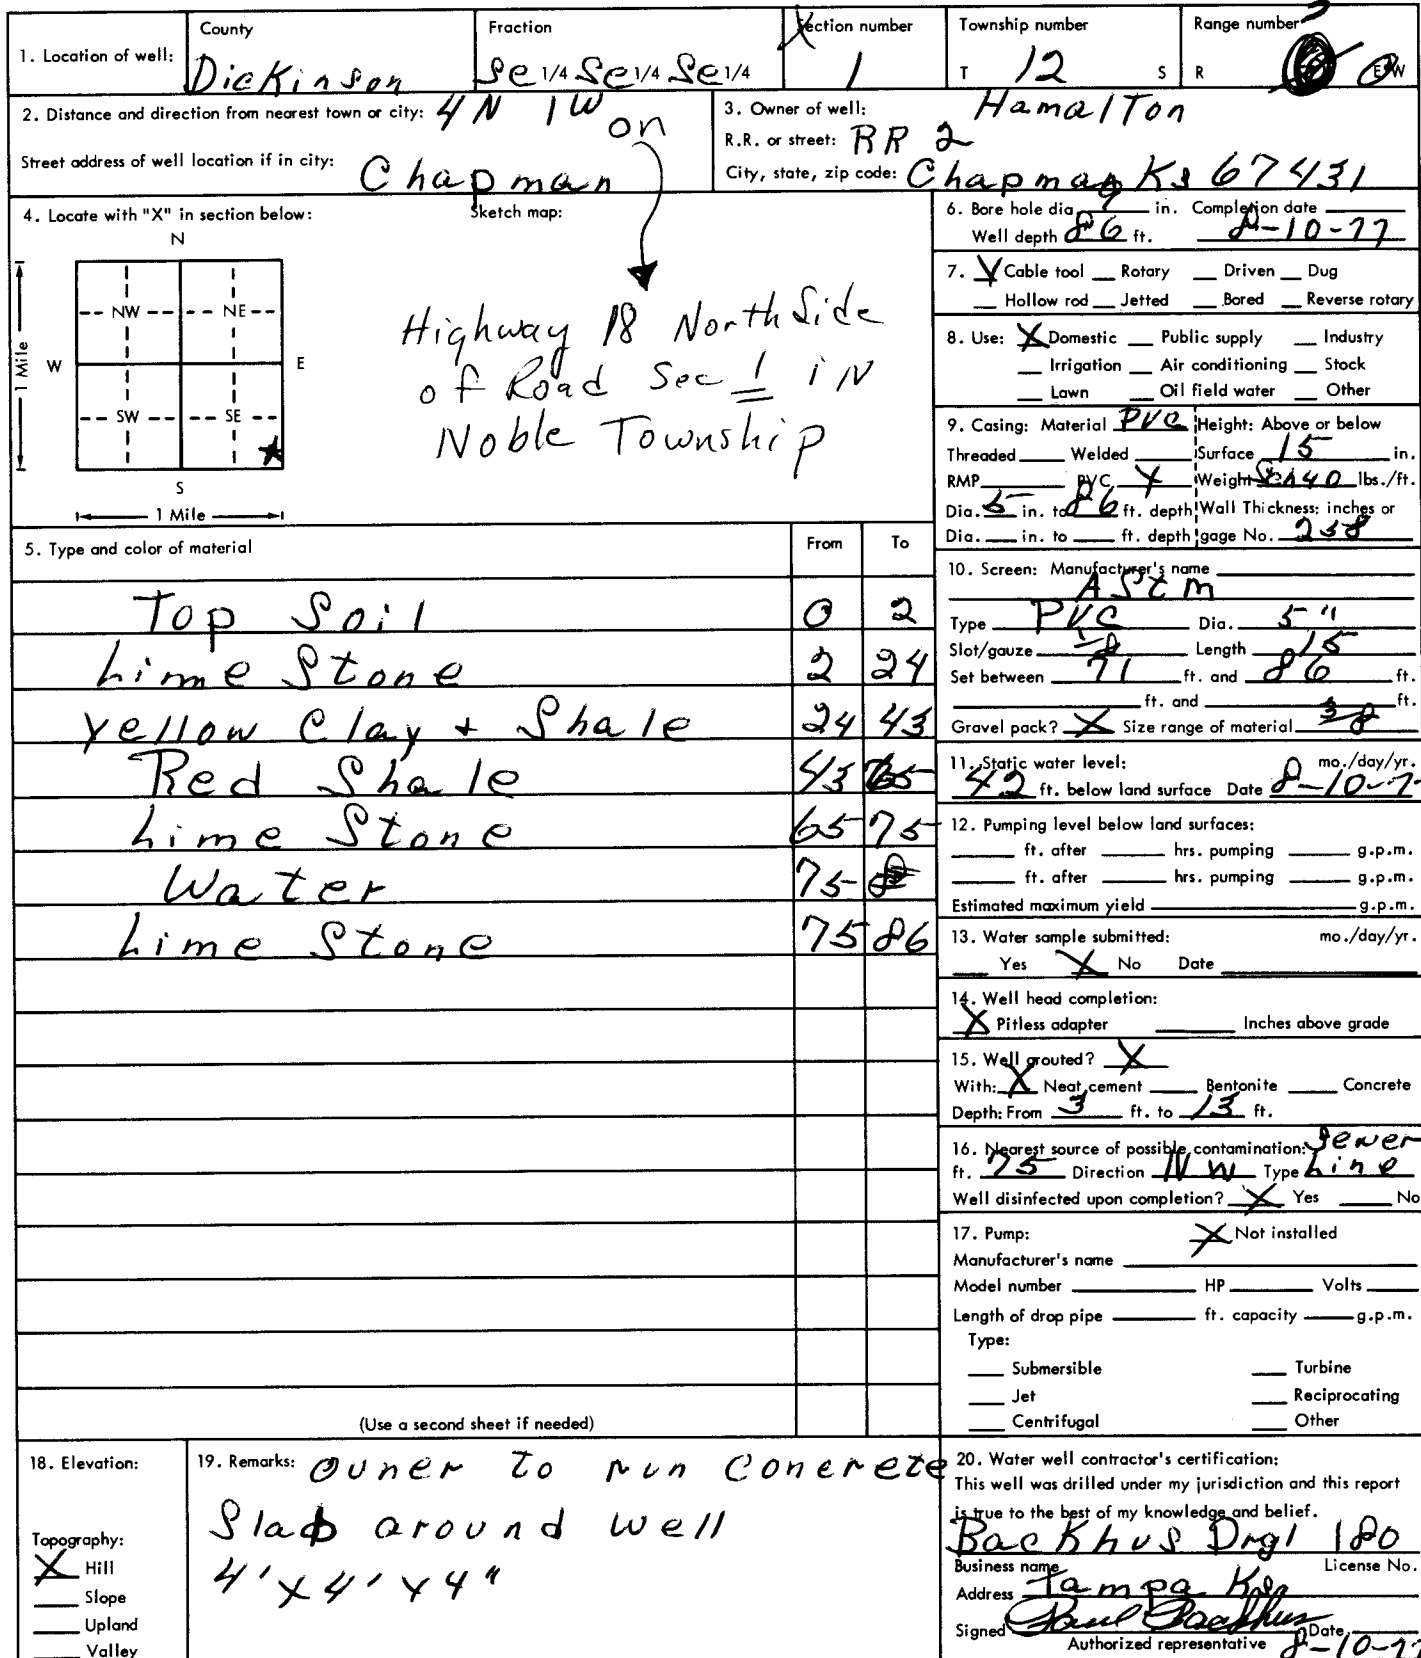 1. Location of well:
County
Dickinson
Fraction
Se 1/4 Se 1/4 Se 1/4
Section number
1
Township number
T 12 S
Range number
R E/W
2. Distance and direction from nearest town or city: 4 N 1 W on
Street address of well location if in city: Chapman
3. Owner of well: Hamalton
R.R. or street: RR 2
City, state, zip code: Chapman Ks 67431
4. Locate with "X" in section below:
N
NW NE
W E
SW SE
S
1 Mile
1 Mile
Sketch map:
Highway 18 North Side
of Road Sec 1 in
Noble Township
5. Type and color of material From To
Top Soil 0 2
Lime Stone 2 24
Yellow Clay + Shale 24 43
Red Shale 43 65
Lime Stone 65 75
Water 75
Lime Stone 75 86
(Use a second sheet if needed)
6. Bore hole dia. 9 in. Completion date
Well depth 86 ft. 8-10-77
7. X Cable tool Rotary Driven Dug
Hollow rod Jetted Bored Reverse rotary
8. Use: X Domestic Public supply Industry
Irrigation Air conditioning Stock
Lawn Oil field water Other
9. Casing: Material PVC Height: Above or below
Threaded Welded Surface 15 in.
RMP PVC X Weight Sch40 lbs./ft.
Dia. 5 in. to 86 ft. depth Wall Thickness: inches or
Dia. in. to ft. depth gage No. 258
10. Screen: Manufacturer's name
AStm
Type PVC Dia. 5"
Slot/gauze 1/8 Length 15
Set between 71 ft. and 86 ft.
ft. and ft.
Gravel pack? X Size range of material 3/8
11. Static water level: mo./day/yr.
42 ft. below land surface Date 8-10-7
12. Pumping level below land surfaces:
ft. after hrs. pumping g.p.m.
ft. after hrs. pumping g.p.m.
Estimated maximum yield g.p.m.
13. Water sample submitted: mo./day/yr.
Yes X No Date
14. Well head completion:
X Pitless adapter Inches above grade
15. Well grouted? X
With: X Neat cement Bentonite Concrete
Depth: From 3 ft. to 13 ft.
16. Nearest source of possible contamination: Sewer
ft. 75 Direction NW Type Line
Well disinfected upon completion? X Yes No
17. Pump: X Not installed
Manufacturer's name
Model number HP Volts
Length of drop pipe ft. capacity g.p.m.
Type:
Submersible Turbine
Jet Reciprocating
Centrifugal Other
18. Elevation:
Topography:
X Hill
Slope
Upland
Valley
19. Remarks: Owner to run Concrete
Slab around well
4' X 4' X 4"
20. Water well contractor's certification:
This well was drilled under my jurisdiction and this report
is true to the best of my knowledge and belief.
Backhus Drgl 180
Business name License No.
Address Tampa Ks
Signed Paul Backhus Date 8-10-77
Authorized representative